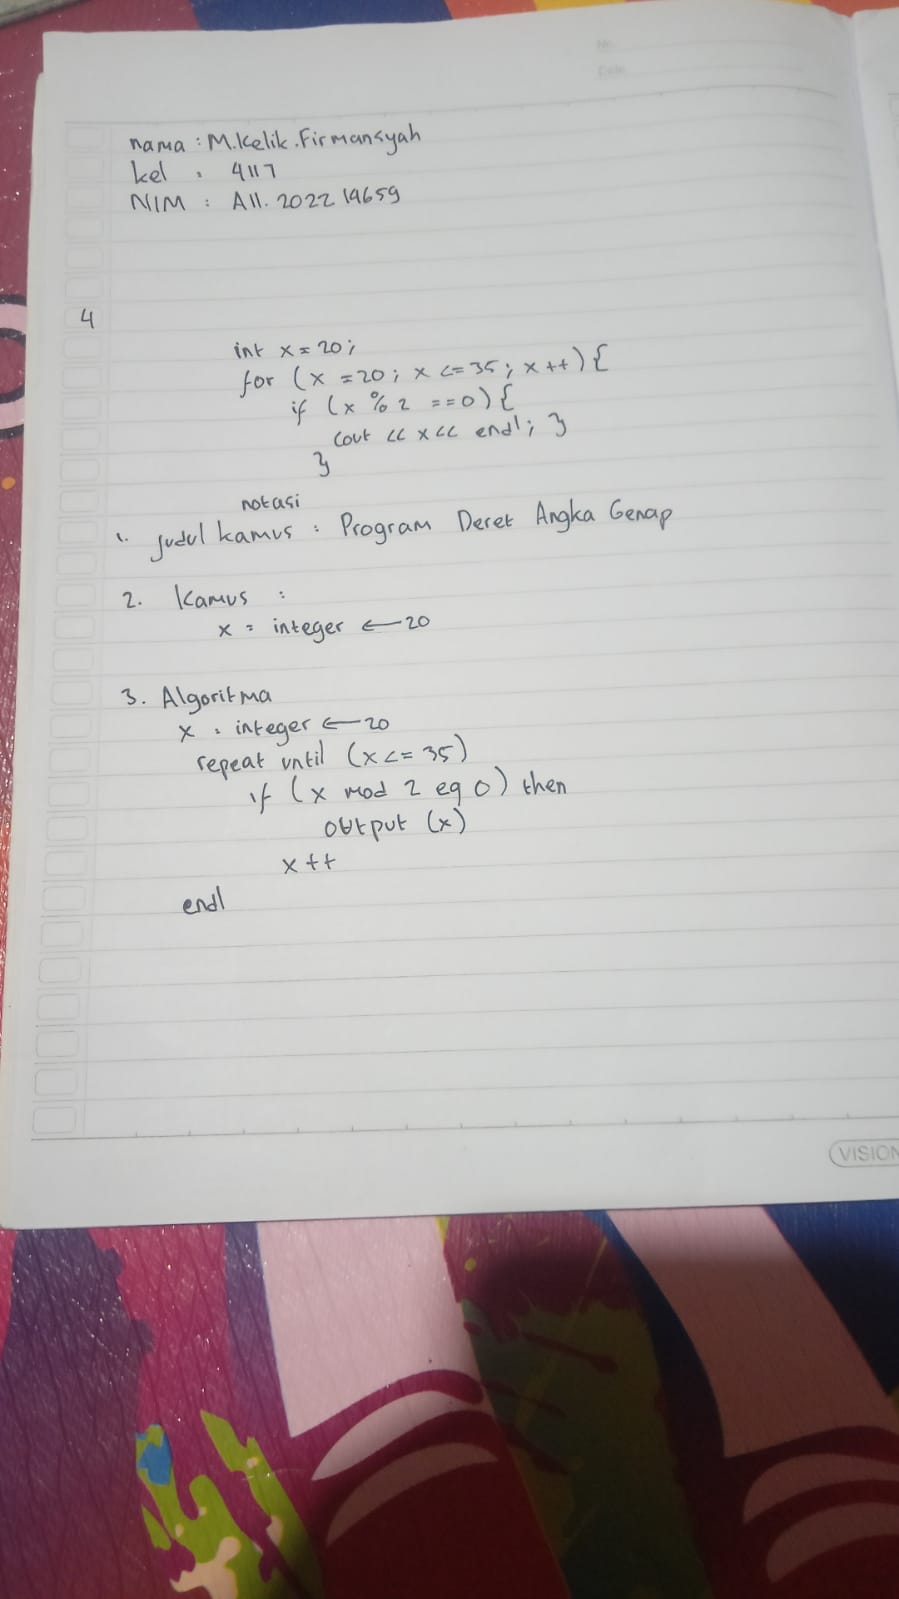 No
Date
nama : M.Kelik.Firmansyah
kel : 4117
NIM : A11.2022 14659
4
int x = 20;
for (x = 20; x <= 35; x++) {
if (x % 2 == 0) {
cout << x << endl; }
}
notasi
1. judul kamus : Program Deret Angka Genap
2. Kamus :
x = integer ← 20
3. Algoritma
x : integer ← 20
repeat until (x <= 35)
if (x mod 2 eq 0) then
output (x)
x ++
endl
VISION